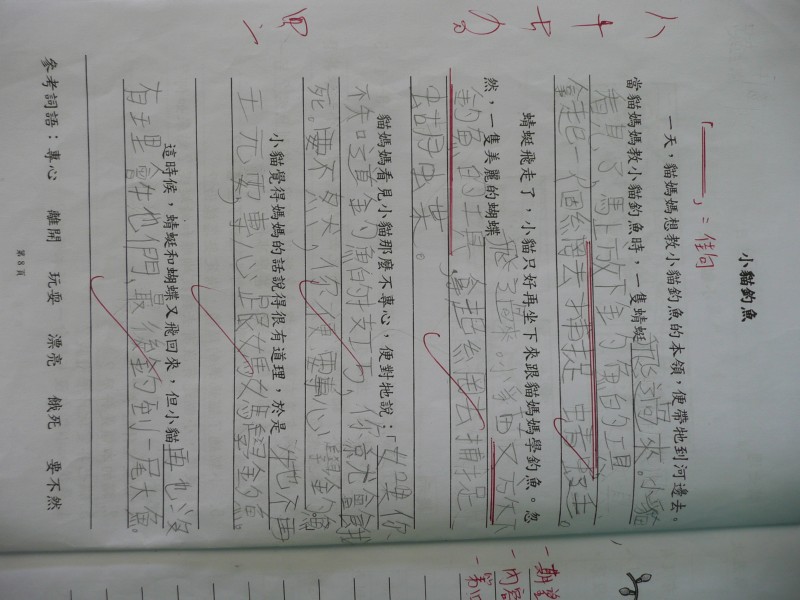 小貓釣魚
「 」:佳句
一天,貓媽媽想教小貓釣魚的本領,便帶牠到河邊去。
當貓媽媽教小貓釣魚時,一隻蜻蜓飛過來。小貓
看見了馬上放下釣魚的工具
拿起一個絲網去捕捉蜻蜓。
蜻蜓飛走了,小貓只好再坐下來跟貓媽媽學釣魚。忽
然,一隻美麗的蝴蝶飛過來。小貓又放下
釣魚的工具,拿起絲網去捕捉
蝴蝶。
貓媽媽看見小貓那麼不專心,便對牠說:「如果你
不知道釣魚的技巧,你就會餓
死。要不然,你便要專心學釣魚
小貓覺得媽媽的話說得很有道理,於是牠不再
玩而專心跟媽媽學釣魚。
這時候,蜻蜓和蝴蝶又飛回來,但小貓再也沒
有理會他們,最後釣到一尾大魚。
參考詞語:專心 離開 玩耍 漂亮 餓死 要不然
第8頁
內容